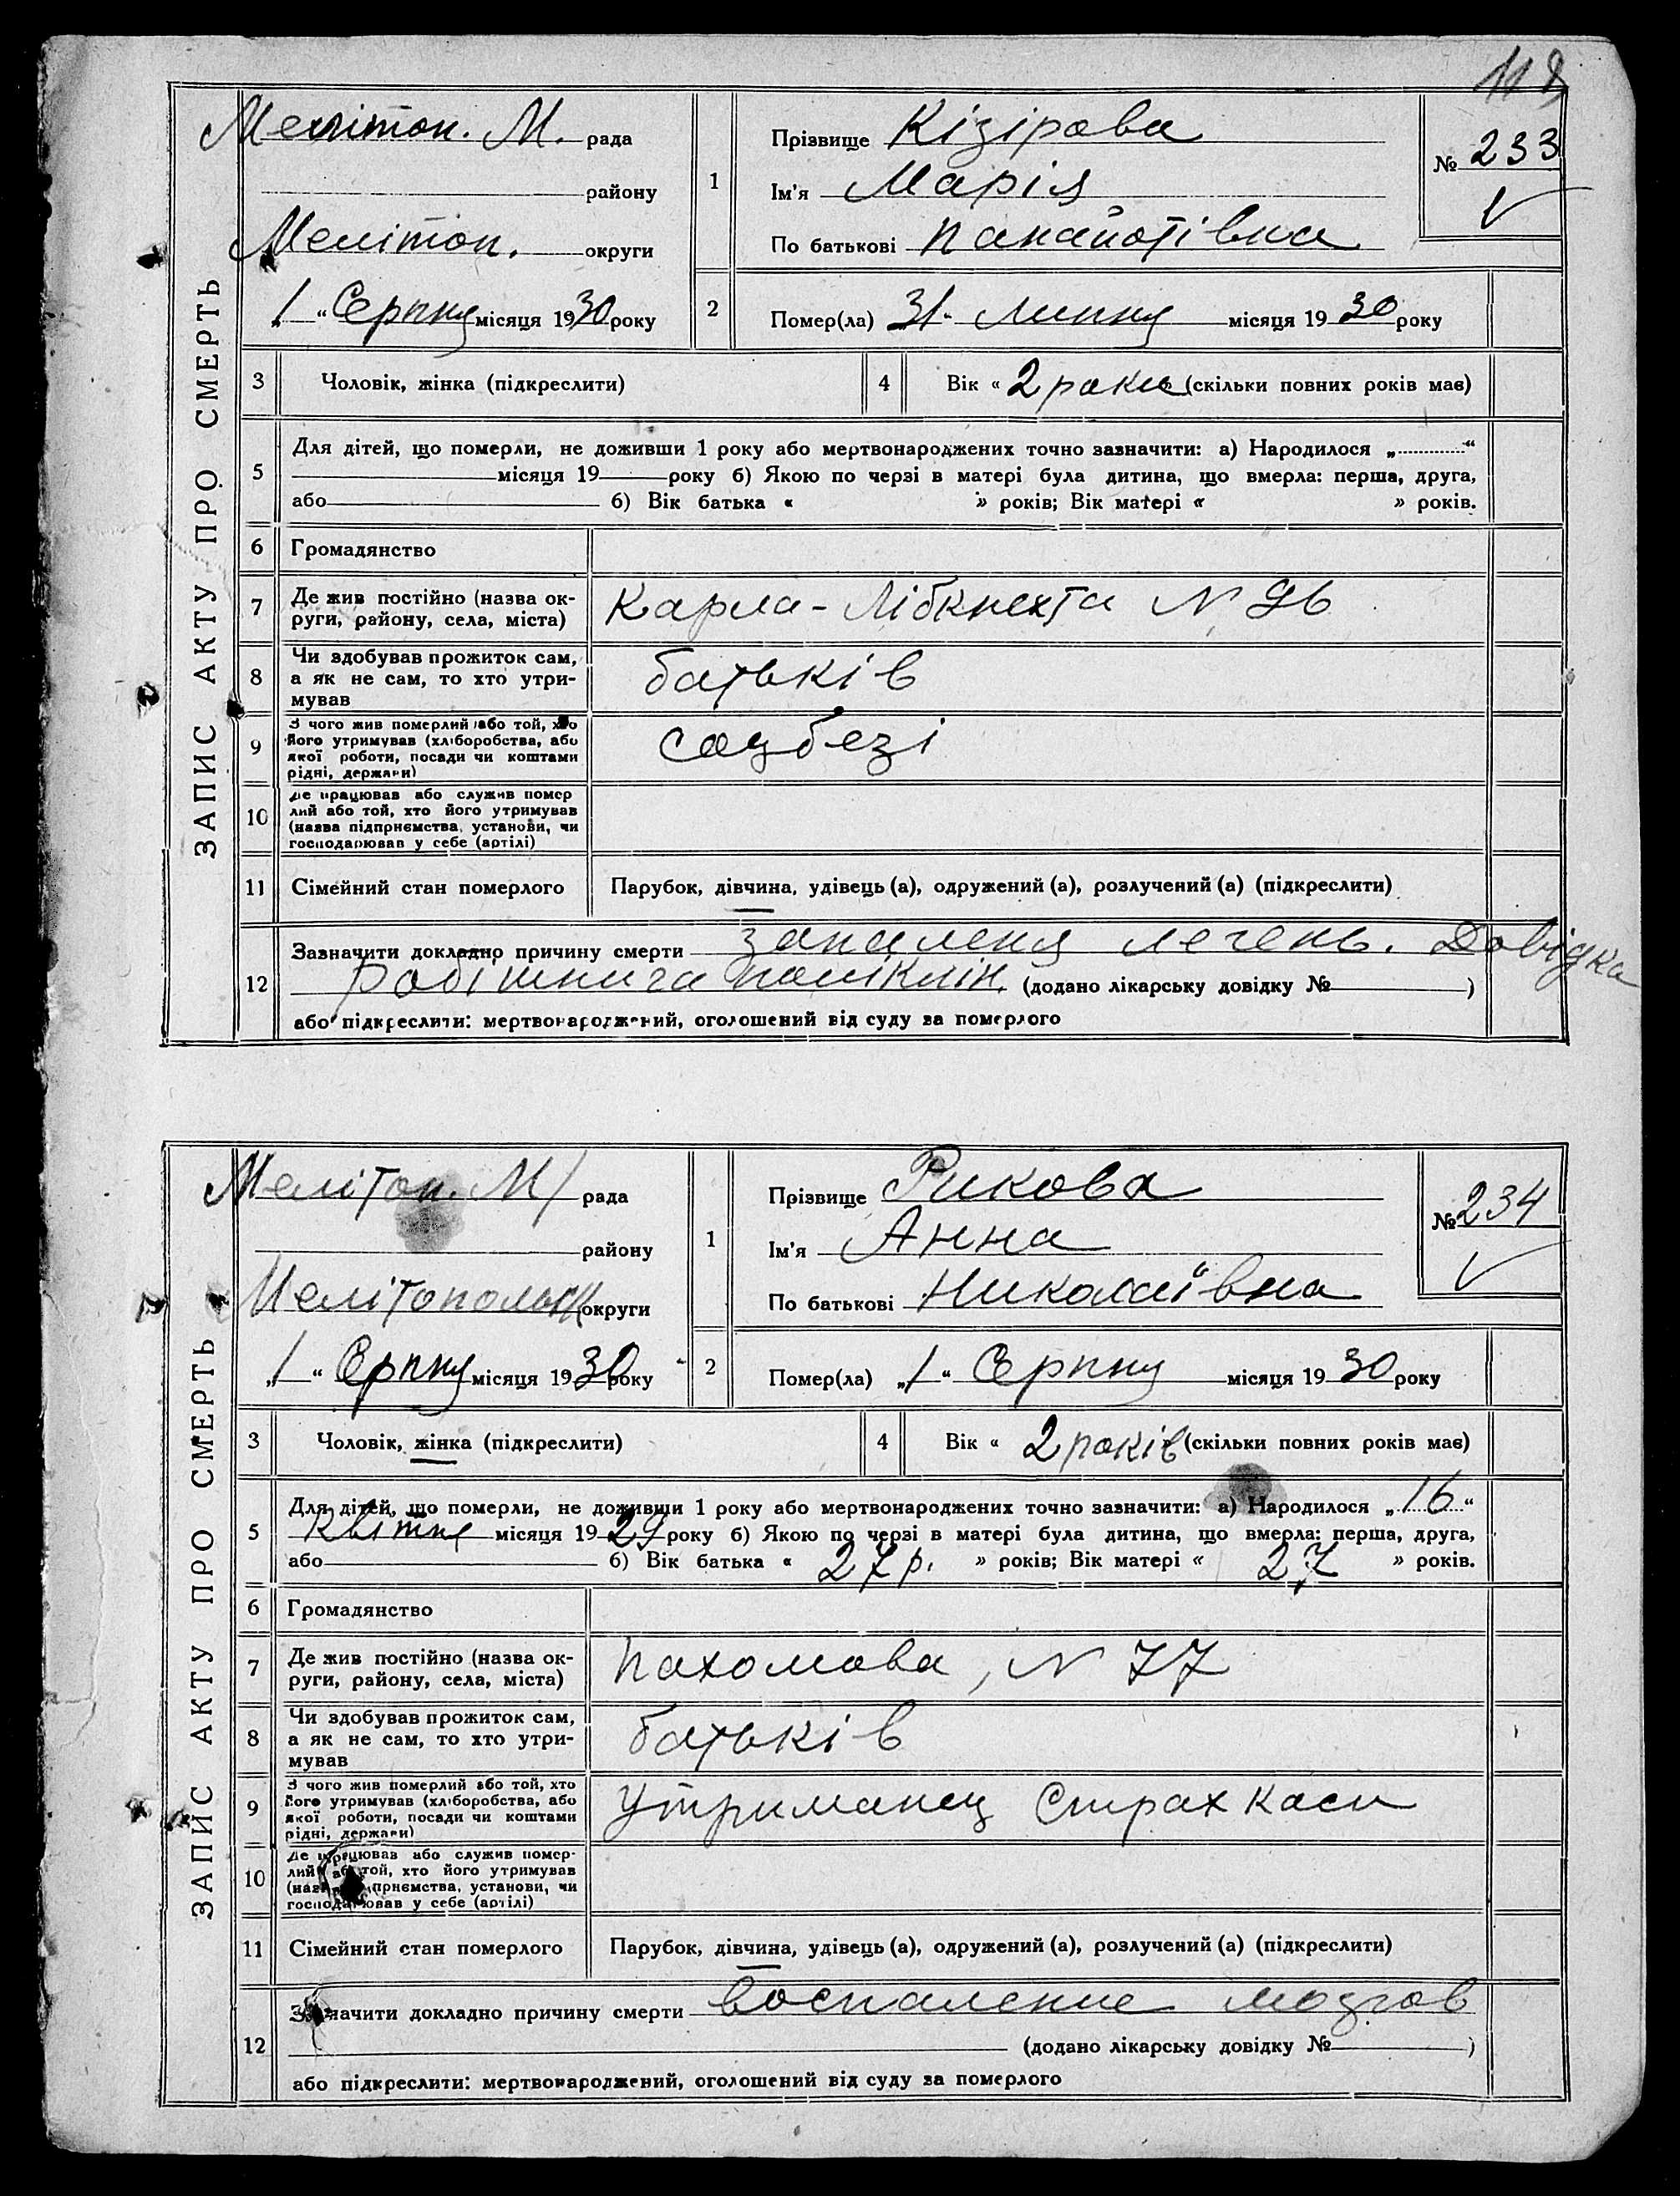 118
ЗАПИС АКТУ ПРО СМЕРТЬ
Мелітоп. М. рада
району
Мелітоп. округи
„1“ Серпня місяця 1930 року
1
Прізвище Кізірова
Ім'я Марія
По батькові Панайотівна
№ 233
2
Помер(ла) 31. Липня місяця 1930 року
3 Чоловік, жінка (підкреслити)
4 Вік « 2 роки (скільки повних років має)
5 Для дітей, що померли, не доживши 1 року або мертвонароджених точно зазначити: а) Народилося „ “
місяця 19 року б) Якою по черзі в матері була дитина, що вмерла: перша, друга,
або б) Вік батька « » років; Вік матері « » років.
6 Громадянство
7 Де жив постійно (назва ок-
руги, району, села, міста)
Карла-Лібкнехта N 96
8 Чи здобував прожиток сам,
а як не сам, то хто утри-
мував
батьків
9 З чого жив померлий або той, хто
його утримував (хліборобства, або
якої роботи, посади чи коштами
рідні, держави)
соцбезі
10 Де працював або служив помер
лий або той, хто його утримував
(назва підприємства, установи, чи
господарював у себе (артілі)
11 Сімейний стан померлого
Парубок, дівчина, удівець (а), одружений (а), розлучений (а) (підкреслити)
12 Зазначити докладно причину смерти запаленя легень. Довідка
Робітнича поліклін. (додано лікарську довідку № )
або підкреслити: мертвонароджений, оголошений від суду за померлого
ЗАПИС АКТУ ПРО СМЕРТЬ
Мелітоп. М/ рада
району
Мелітопольськ округи
„1“ Серпня місяця 1930 року
1
Прізвище Рикова
Ім'я Анна
По батькові Николаївна
№ 234
2
Помер(ла) „1“ Серпня місяця 1930 року
3 Чоловік, жінка (підкреслити)
4 Вік « 2 років (скільки повних років має)
5 Для дітей, що померли, не доживши 1 року або мертвонароджених точно зазначити: а) Народилося „16“
Квітня місяця 1929 року б) Якою по черзі в матері була дитина, що вмерла: перша, друга,
або б) Вік батька « 27 р. » років; Вік матері « 27 » років.
6 Громадянство
7 Де жив постійно (назва ок-
руги, району, села, міста)
Пахомова, N 77
8 Чи здобував прожиток сам,
а як не сам, то хто утри-
мував
батьків
9 З чого жив померлий або той, хто
його утримував (хліборобства, або
якої роботи, посади чи коштами
рідні, держави)
Утриманец Страх каси
10 Де працював або служив помер-
лий або той, хто його утримував
(назва підприємства, установи, чи
господарював у себе (артілі)
11 Сімейний стан померлого
Парубок, дівчина, удівець (а), одружений (а), розлучений (а) (підкреслити)
12 Зазначити докладно причину смерти воспаление мозгов
(додано лікарську довідку № )
або підкреслити: мертвонароджений, оголошений від суду за померлого